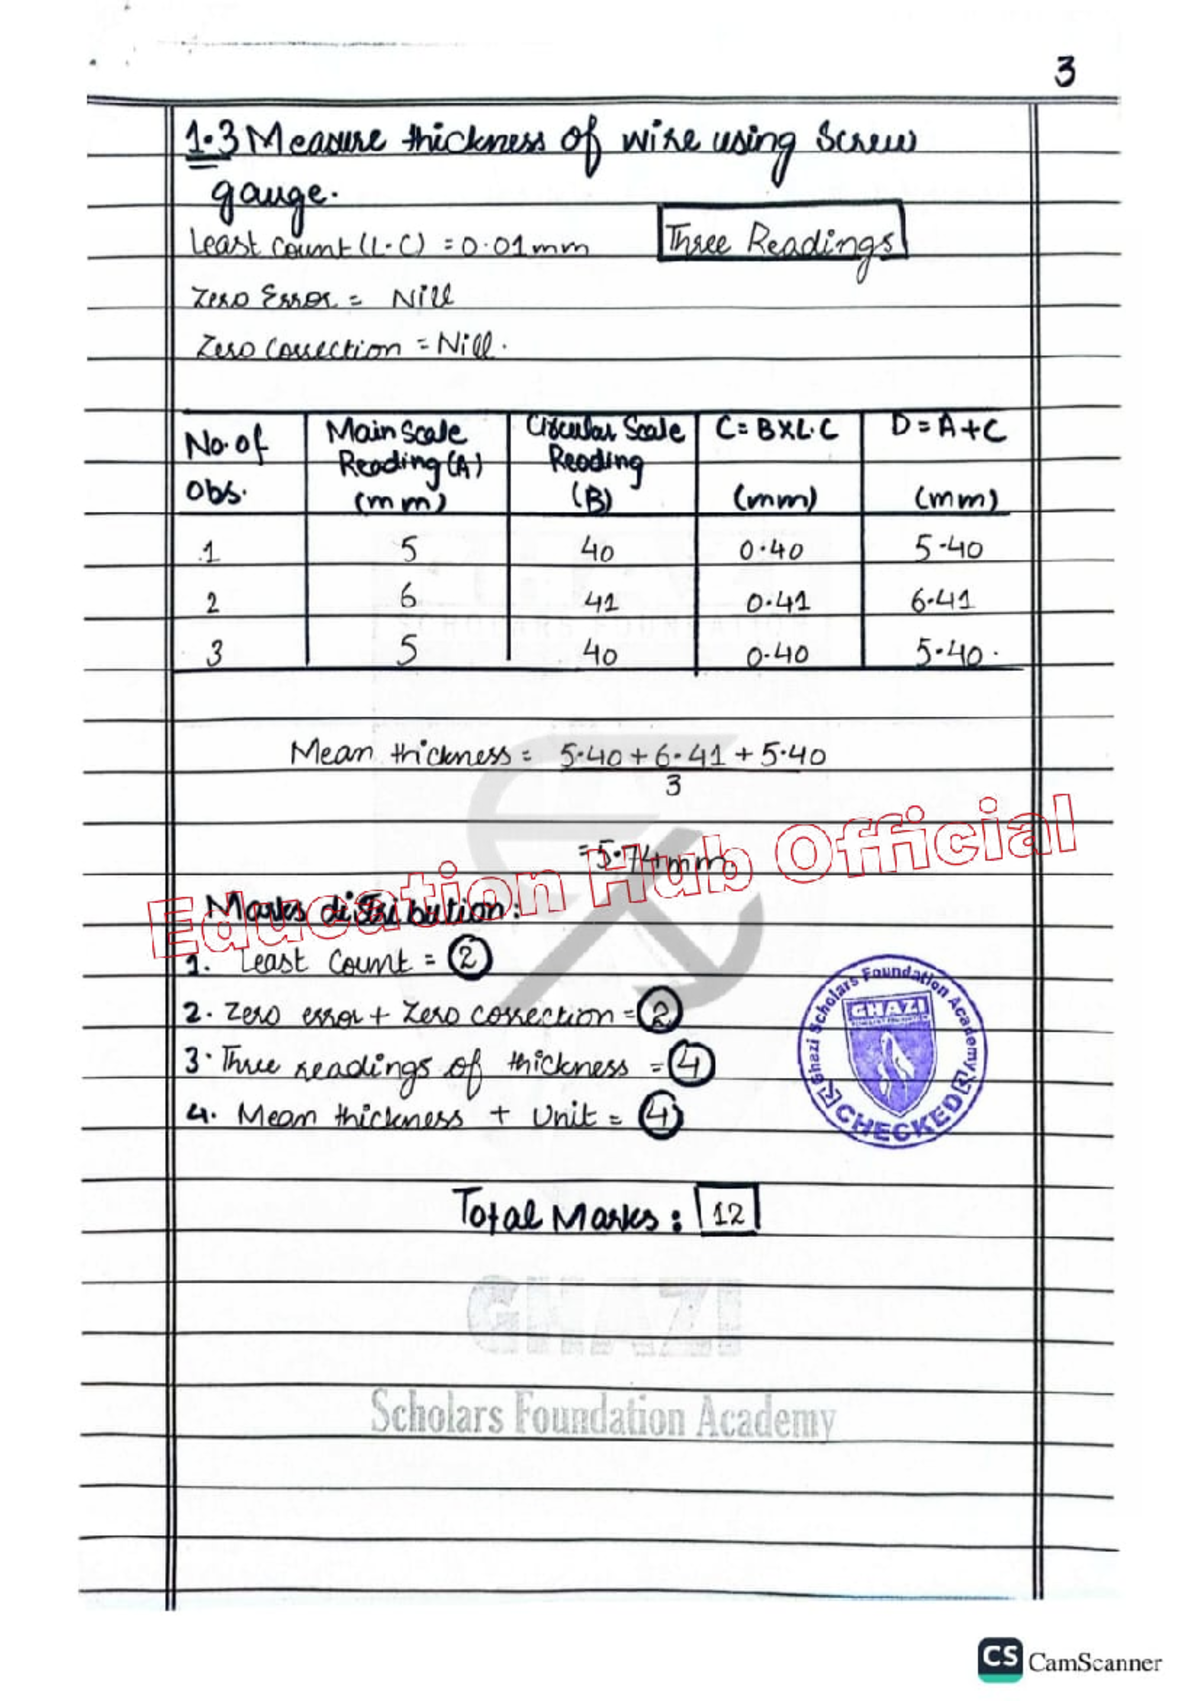 3
1.3 Measure thickness of wire using Screw
gauge.
Least count (L.C) = 0.01mm
Three Readings
Zero Error = Nill
Zero Correction = Nill.
No. of Obs. Main Scale Reading (A) (mm) Circular Scale Reading (B) C = B×L.C (mm) D = A+C (mm)
1 5 40 0.40 5.40
2 6 41 0.41 6.41
3 5 40 0.40 5.40.
Mean thickness = 5.40 + 6.41 + 5.40
3
= 5.74mm
Education Hub Official
Marks distribution:
1. Least Count = 2
2. Zero error + Zero correction = 2
3. Three readings of thickness = 4
4. Mean thickness + Unit = 4
Ghazi Scholars Foundation Academy
GHAZI
CHECKED
Total Marks: 12
GHAZI
Scholars Foundation Academy
CS CamScanner